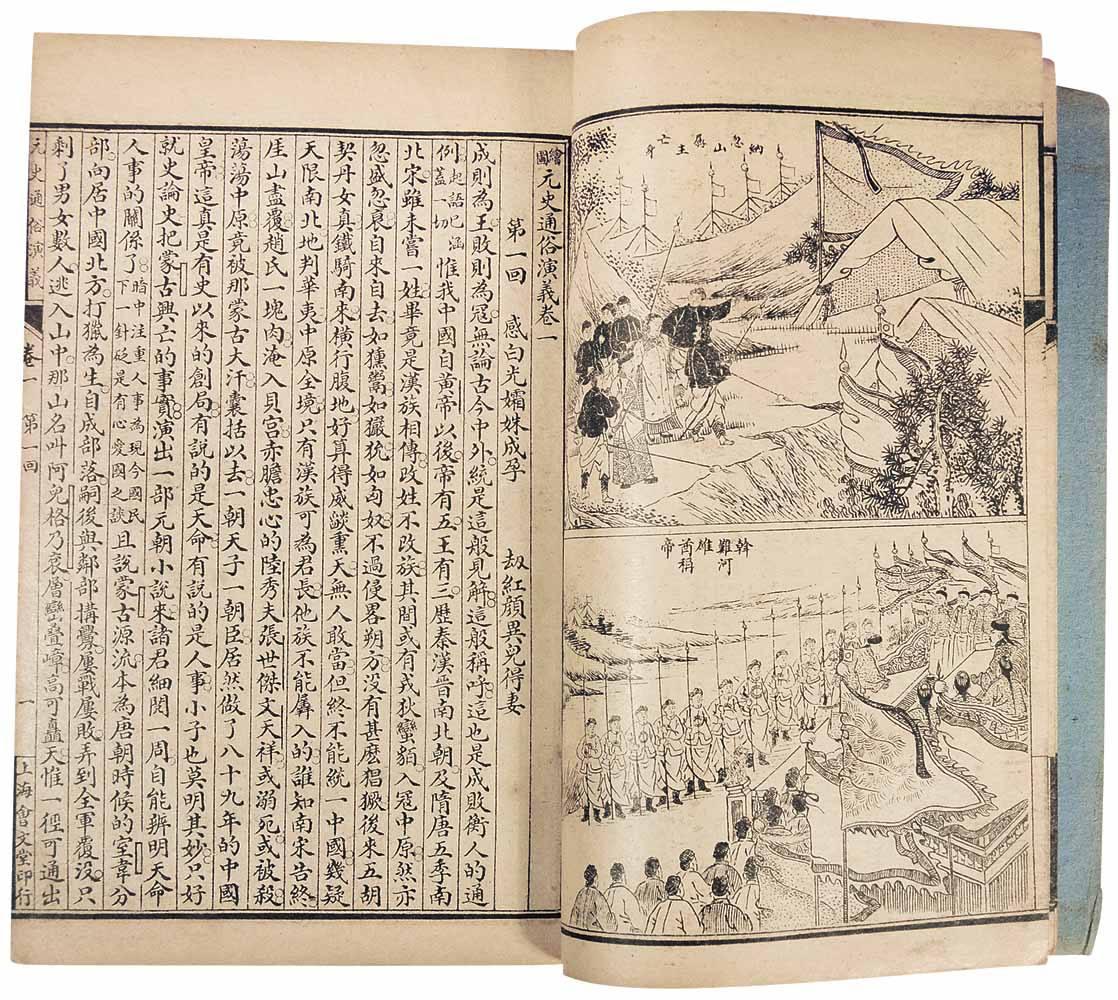 納忽山孱主亡身
斡難河雄酋稱帝
繪圖元史通俗演義卷一
第一回　感白光孀姝成孕　劫紅顏異兒得妻
成則為王敗則為寇無論古今中外統是這般見解這般稱呼這也是成敗衡人的通
例起語已涵蓋一切惟我中國自黃帝以後帝有五王有三歷秦漢晉南北朝及隋唐五季南
北宋雖未嘗一姓畢竟是漢族相傳改姓不改族其間或有戎狄蠻貊入寇中原然亦
忽盛忽衰自來自去如獯鬻如玁狁如匈奴不過侵畧朔方沒有甚麽猖獗後來五胡
契丹女真鐵騎南來橫行腹地好算得威燄熏天無人敢當但終不能統一中國幾疑
天限南北地判華夷中原全境只有漢族可為君長他族不能羼入的誰知南宋告終
厓山盡覆趙氏一塊肉淹入貝宮赤膽忠心的陸秀夫張世傑文天祥或溺死或被殺
蕩蕩中原竟被那蒙古大汗囊括以去一朝天子一朝臣居然做了八十九年的中國
皇帝這真是有史以來的創局有說的是天命有說的是人事小子也莫明其妙只好
就史論史把蒙古興亡的事實演出一部元朝小說來諸君細閱一周自能辨明天命
人事的關係了暗中注重人事為現今國民下一針砭是有心愛國之談且說蒙古源流本為唐朝時候的室韋分
部向居中國北方打獵為生自成部落嗣後與鄰部構釁屢戰屢敗弄到全軍覆沒只
剩了男女數人逃入山中那山名叫阿兒格乃袞層巒疊嶂高可矗天惟一徑可通出
元史通俗演義　卷一　第一回　一　上海會文堂印行